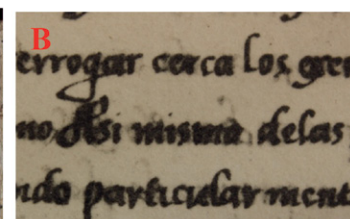 B
errogar cerca los gre
no Asi misma delas
ndo particular ment